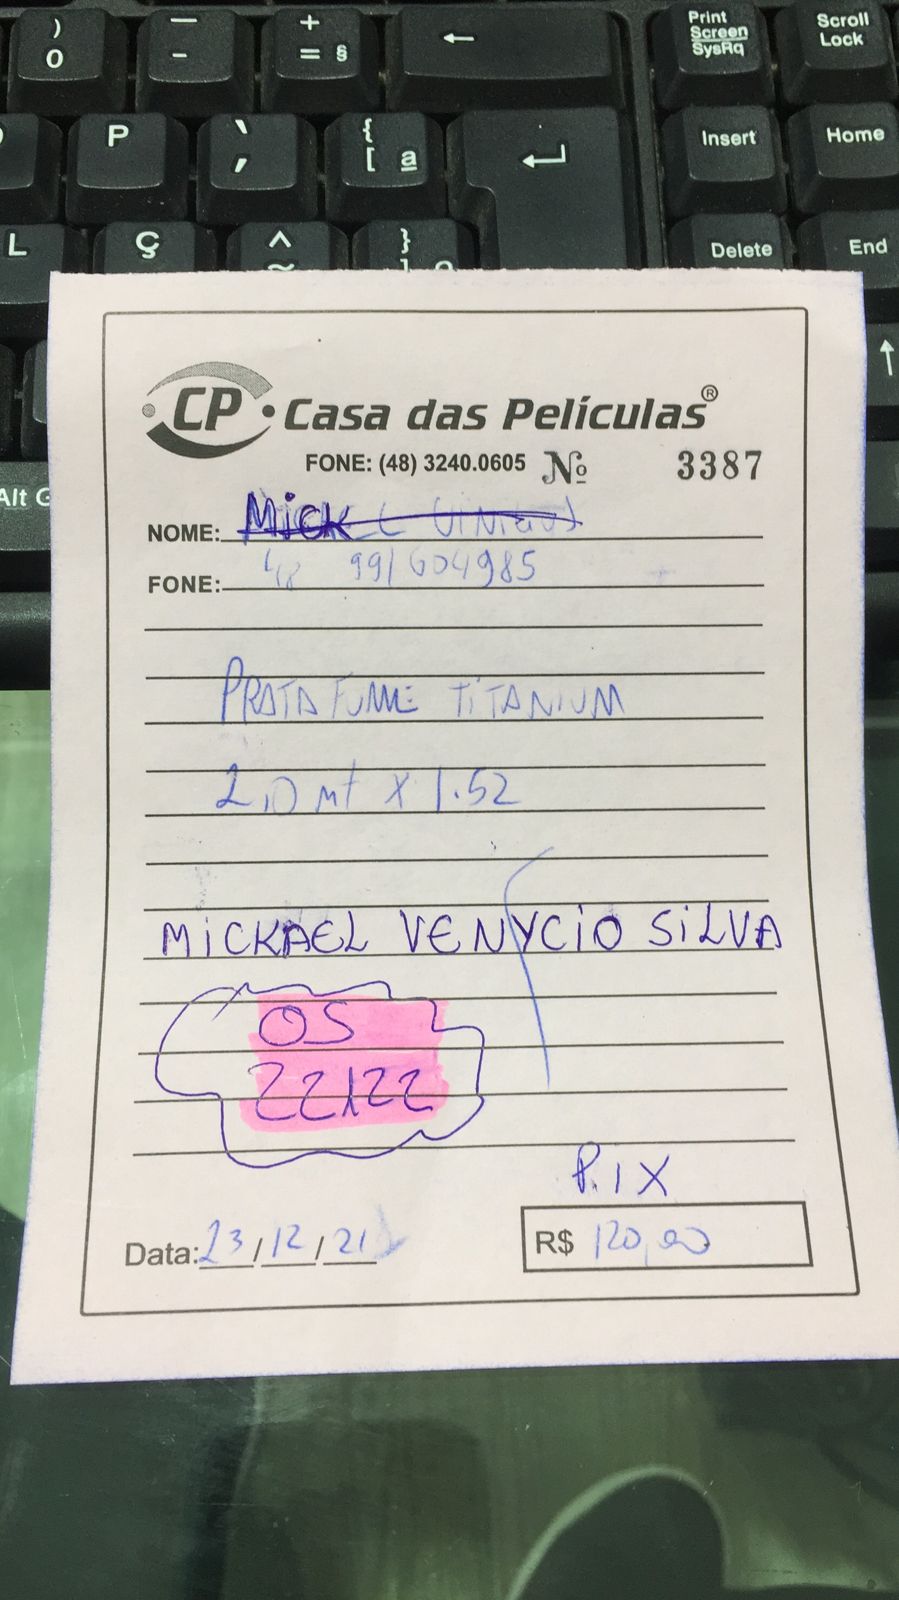 ) — + ← Print Screen SysRq Scroll Lock
0 - = §
P ` { ← Insert Home
´ [ ª
L Ç ^ } Delete End
~ ] º
↑
Alt G
CP Casa das Películas®
FONE: (48) 3240.0605 Nº 3387
NOME: Mick
FONE: 48 991604985
PRATA FUME TITANIUM
2,0 mt x 1.52
MICKAEL VENYCIO SILVA
OS
22122
P.IX
Data: 23/12/21 R$ 120,00